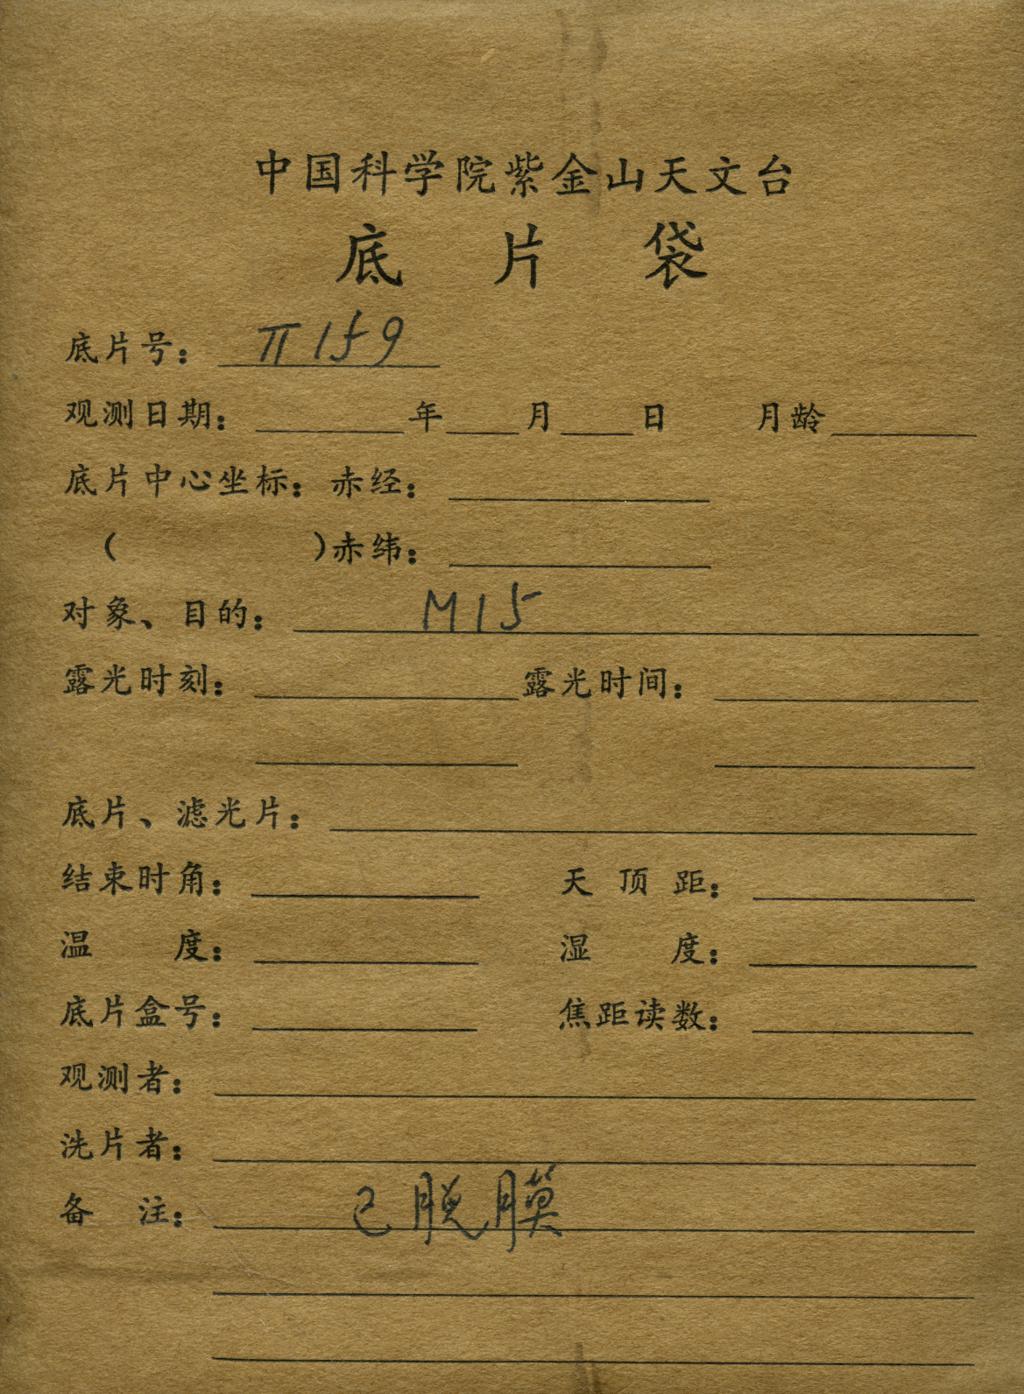 中国科学院紫金山天文台
底片袋
底片号：π159
观测日期：年月日 月龄
底片中心坐标：赤经：
（ ）赤纬：
对象、目的：M15
露光时刻： 露光时间：
底片、滤光片：
结束时角： 天顶距：
温度： 湿度：
底片盒号： 焦距读数：
观测者：
洗片者：
备注：已脱膜